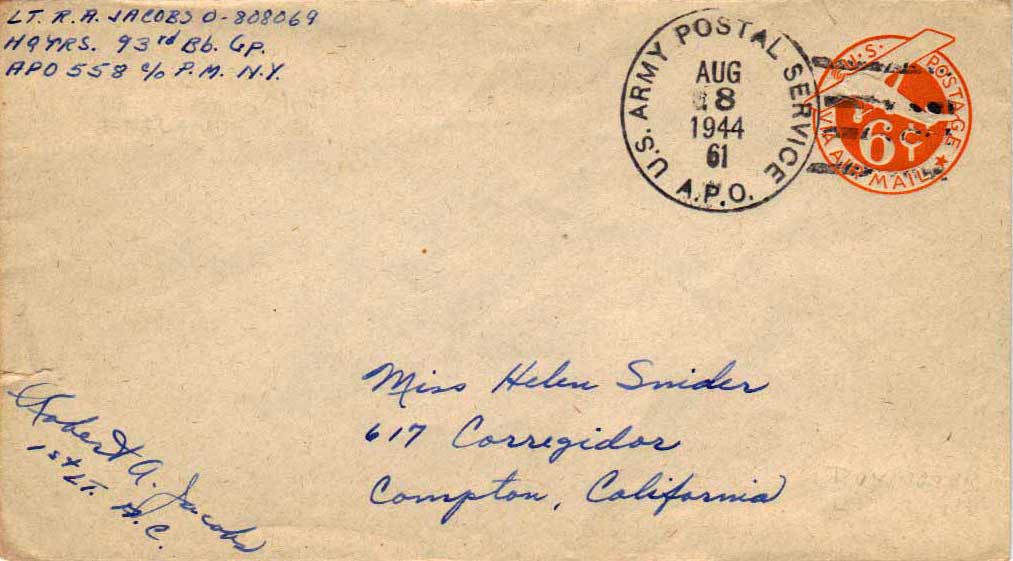 LT. R.A. JACOBS O-808069
HQTRS. 93rd Bb. GP.
APO 558 c/o P.M. N.Y.
U.S. ARMY POSTAL SERVICE
AUG
8
1944
61
A.P.O.
U.S. POSTAGE
6¢
VIA AIR MAIL
Miss Helen Snider
617 Corregidor
Compton, California
Robert A. Jacobs
1st LT. A.C.